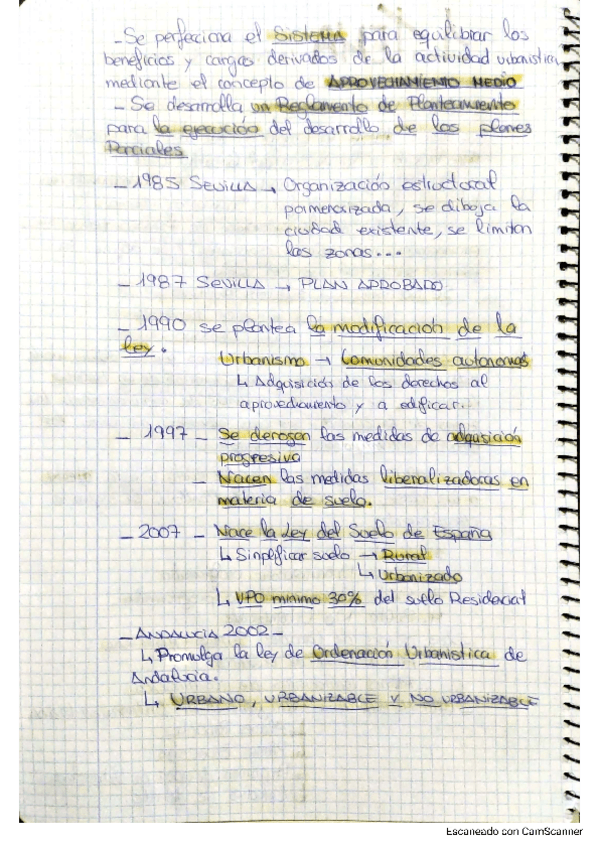 - Se perfeciona el SISTEMA para equilibrar los
beneficios y cargas derivados de la actividad urbanistica
mediante el concepto de APROVECHAMIENTO MEDIO
- Se desarrolla un Reglamento de Planteamiento
para la ejecución del desarrollo de los planes
Parciales
- 1985 SEVILLA → Organización estructural
pormenorizada, se dibuja la
ciudad existente, se limitan
las zonas...
- 1987 SEVILLA → PLAN APROBADO
- 1990 se plantea la modificación de la
ley.
Urbanismo → Comunidades autonomas
↳ Adquisición de los derechos al
aprovechamiento y a edificar.
- 1997 - Se derogan las medidas de adquisición
progresiva
- Nacen las medidas liberalizadoras en
materia de suelo.
- 2007 - Nace la Ley del Suelo de España
↳ Simplificar suelo → Rural
↳ Urbanizado
↳ VPO minimo 30% del suelo Residencial
- ANDALUCIA 2002 -
↳ Promulga la ley de Ordenación Urbanistica de
Andalucia.
↳ URBANO, URBANIZABLE Y NO URBANIZABLE
Escaneado con CamScanner